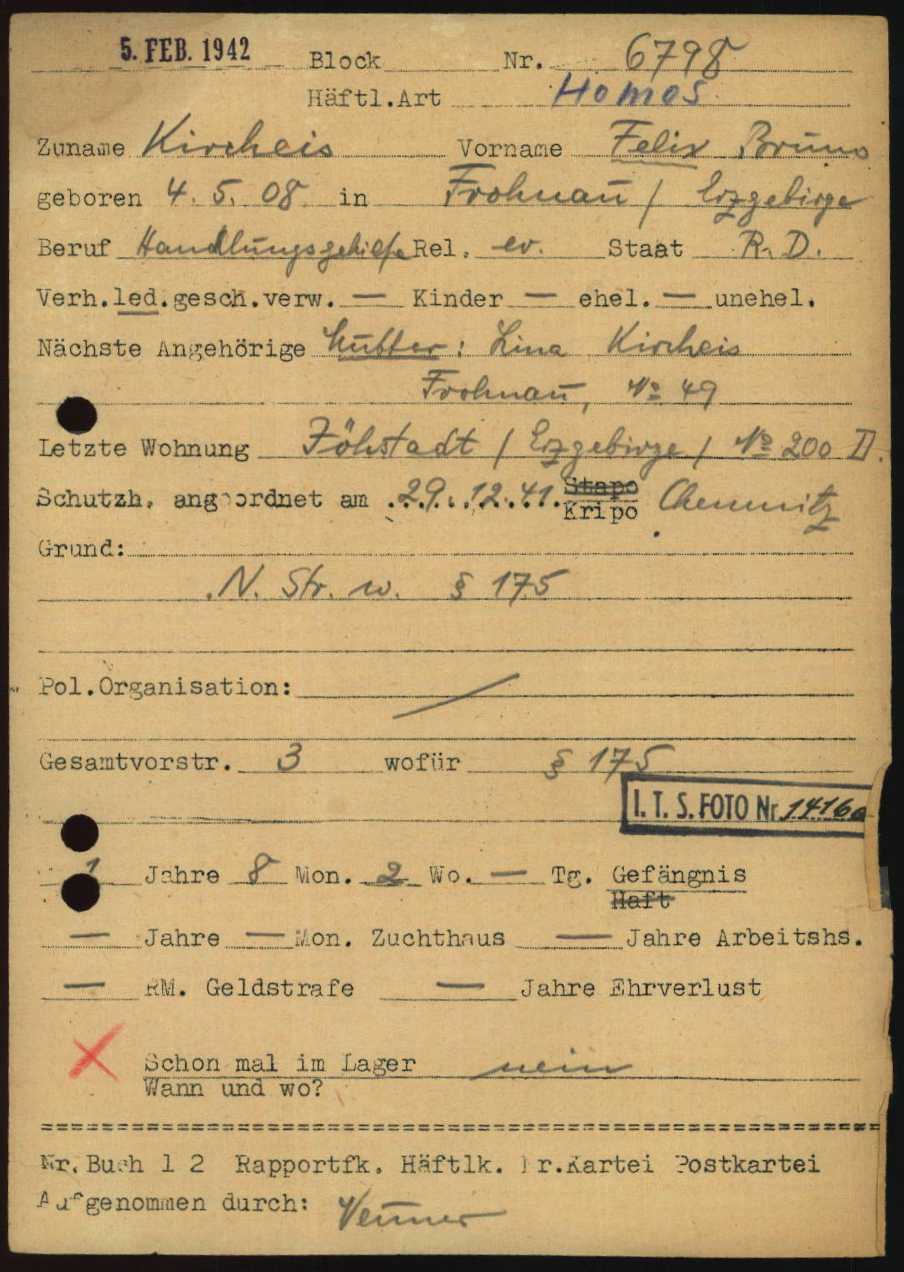 5. FEB. 1942 Block Nr. 6798
Häftl.Art Homos
Zuname Kircheis Vorname Felix Bruno
geboren 4. 5. 08 in Frohnau / Erzgebirge
Beruf Handlungsgehilfe Rel. ev. Staat R. D.
Verh.led.gesch.verw. — Kinder — ehel. — unehel.
Nächste Angehörige Mutter: Lina Kircheis
Frohnau, No 49
Letzte Wohnung Jöhstadt / Erzgebirge / No 200 II.
Schutzh. angeordnet am 29. 12. 41. Stapo Kripo Chemnitz
Grund:
N. Str. w. § 175
Pol.Organisation: /
Gesamtvorstr. 3 wofür § 175
I. T. S. FOTO Nr 1416
1 Jahre 8 Mon. 2 Wo. — Tg. Gefängnis
Haft
— Jahre — Mon. Zuchthaus — Jahre Arbeitshs.
— RM. Geldstrafe — Jahre Ehrverlust
Schon mal im Lager nein
Wann und wo?
Nr. Buch 1 2 Rapportfk. Häftlk. Nr.Kartei Postkartei
Aufgenommen durch: